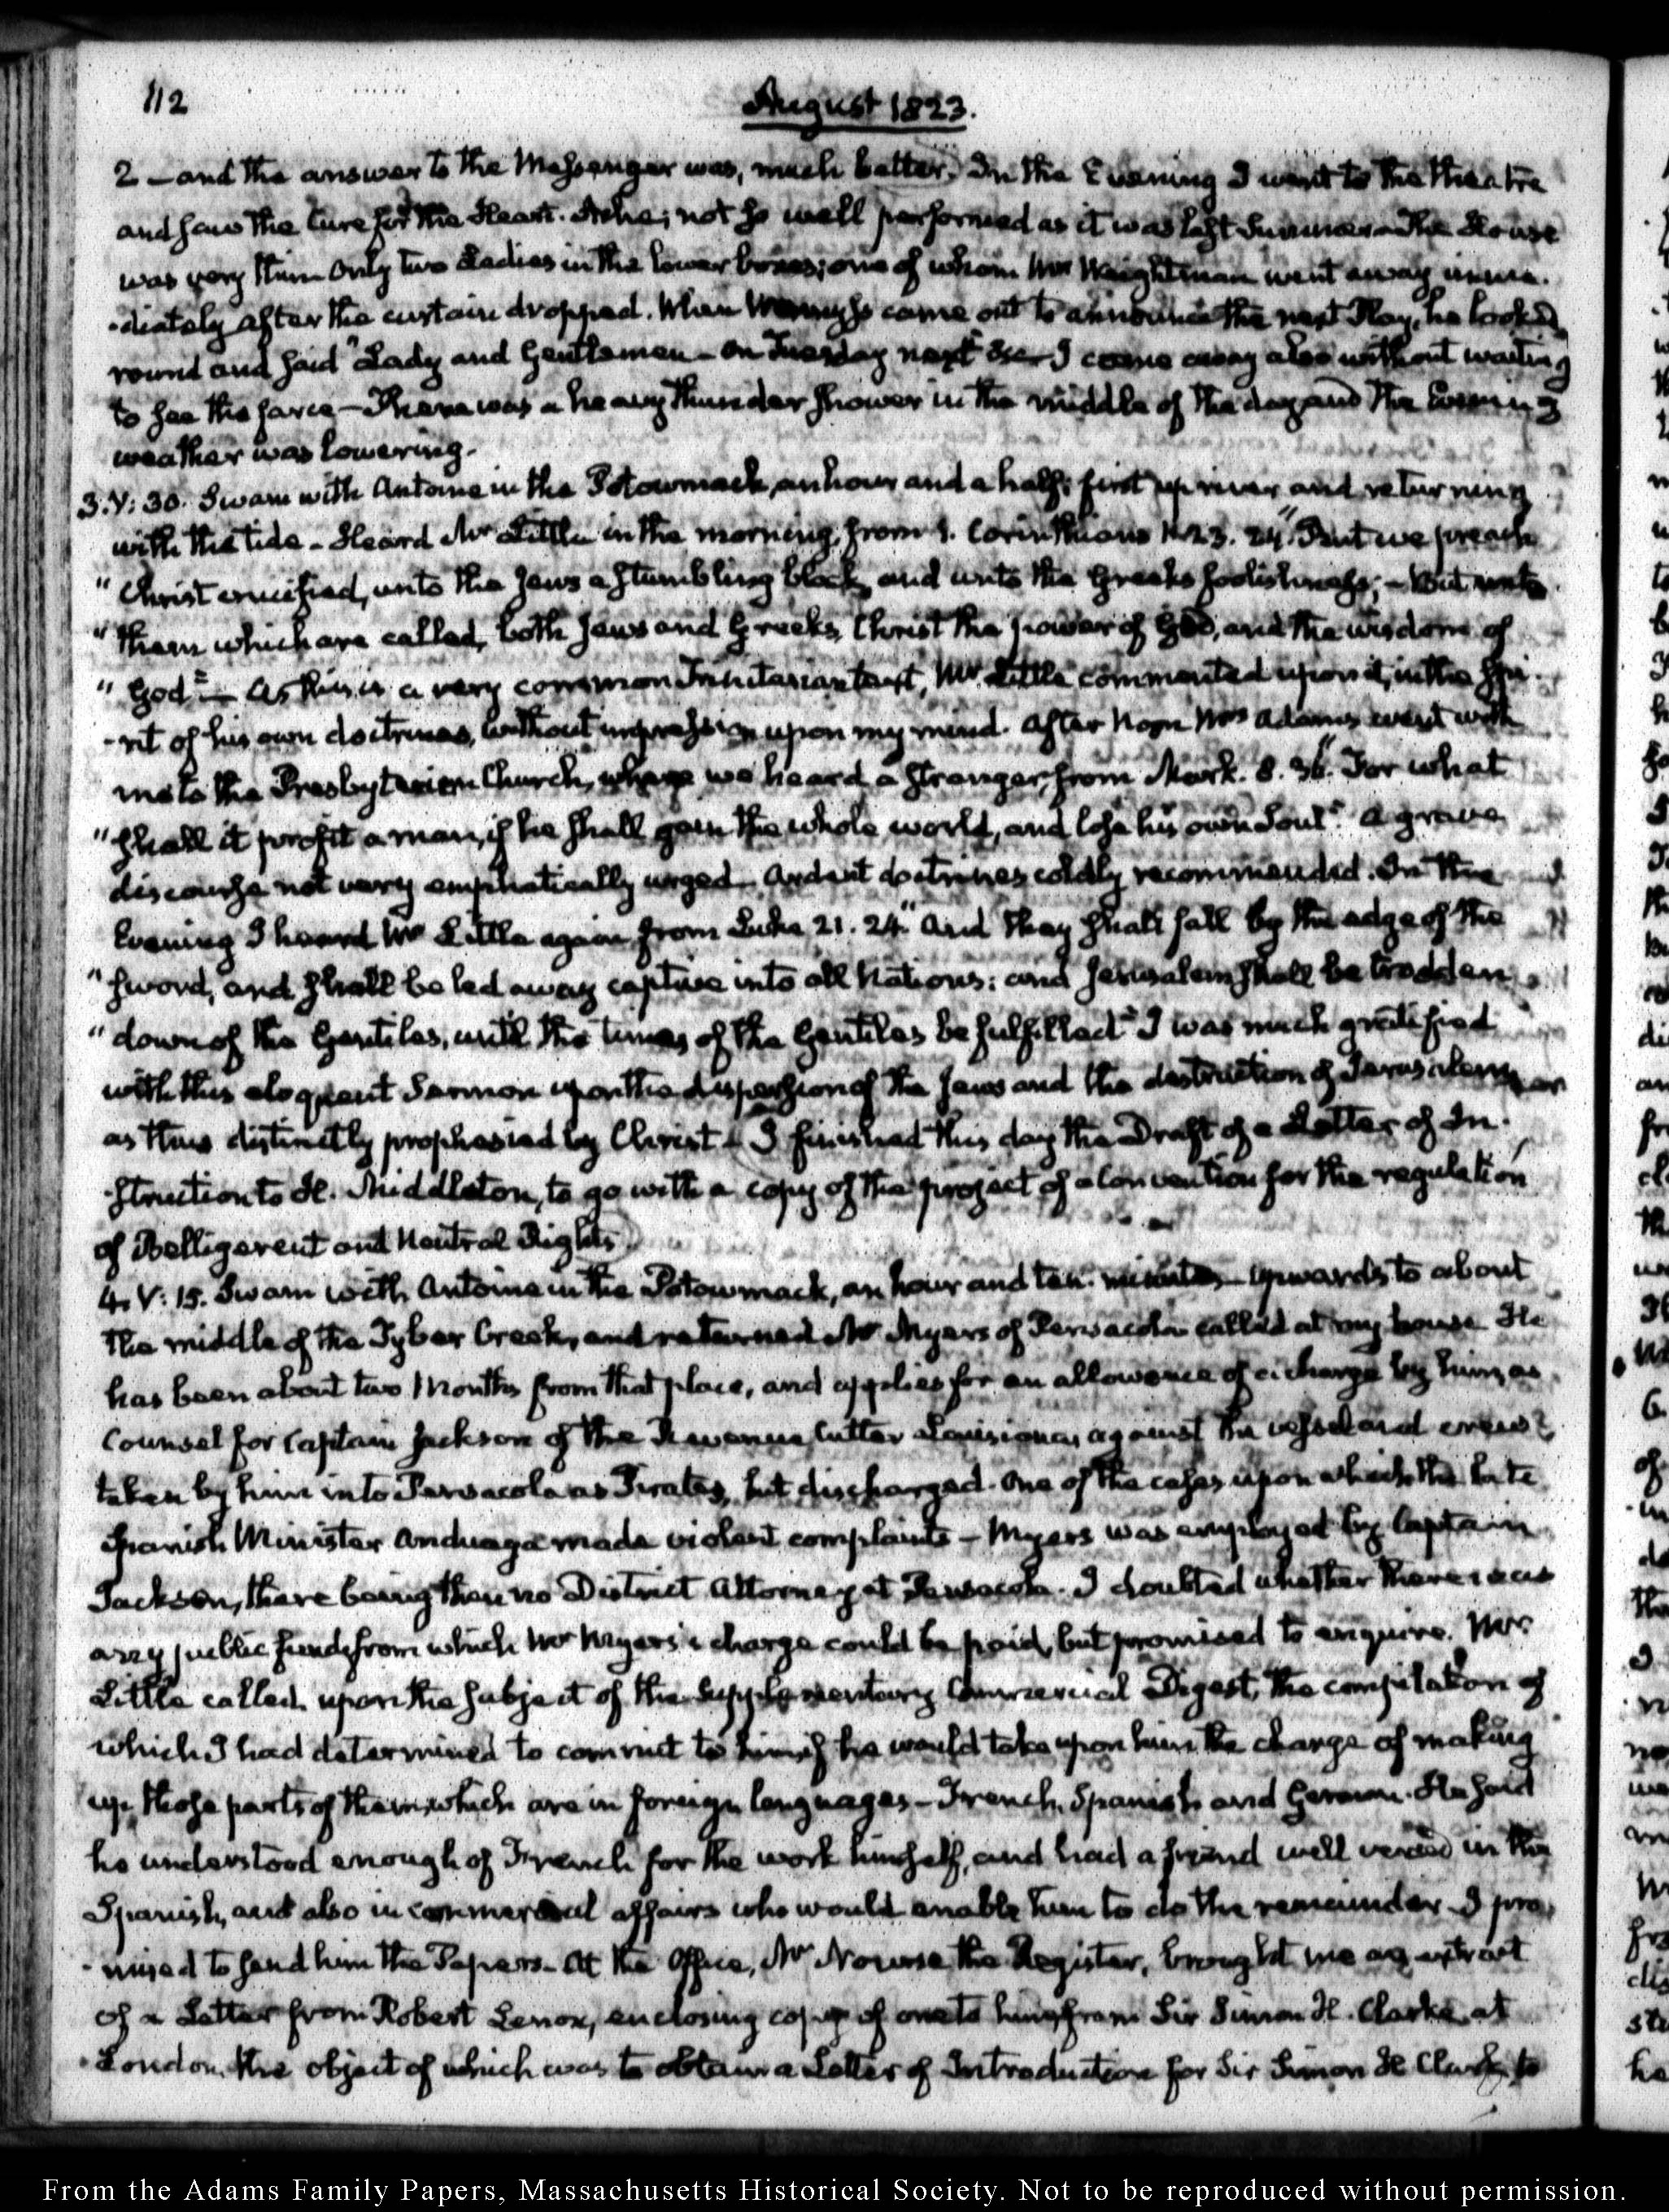 112
August 1823.
2 – and the answer to the Messenger was, much better. In the Evening I went to the theatre
and saw the Cure for the Heart-Ache; not so well performed as it was last Summer – The House
was very thin – Only two Ladies in the lower boxes; one of whom Mrs Weightman went away imme-
-diately after the curtain dropped. When Wemyss came out to announce the next Play, he looked
round and said "Lady and Gentlemen – on Tuesday next &c – I came away also without waiting
to see the farce – There was a heavy thunder shower in the middle of the day and the Evening
weather was lowering.
3. V: 30. Swam with Antoine in the Potowmack, an hour and a half; first up river and returning
with the tide – Heard Mr Little in the morning, from 1. Corinthians 1. 23. 24. "But we preach
" Christ crucified, unto the Jews a stumbling block, and unto the Greeks foolishness; – But unto
" them which are called, both Jews and Greeks, Christ the power of God, and the wisdom of
" God" – As this is a very common Trinitarian text, Mr Little commented upon it, in the Spi-
-rit of his own doctrines, without impression upon my mind. After Noon Mrs Adams went with
me to the Presbyterian Church, where we heard a stranger, from Mark. 8. 36. "For what
" shall it profit a man, if he shall gain the whole world, and lose his own Soul". A grave
discourse not very emphatically urged. Ardent doctrines coldly recommended. In the
Evening I heard Mr Little again from Luke 21. 24. "And they shall fall by the edge of the
" sword, and shall be led away captive into all Nations: and Jerusalem shall be trodden
" down of the Gentiles, until the times of the Gentiles be fulfilled" I was much gratified
with this eloquent Sermon upon the dispersion of the Jews and the destruction of Jerusalem
as thus distinctly prophesied by Christ – I finished this day the Draft of a Letter of In-
-struction to H. Middleton, to go with a copy of the project of a Convention for the regulation
of Belligerent and Neutral Rights.
4. V: 15. Swam with Antoine in the Potowmack, an hour and ten minutes – upwards to about
the middle of the Tyber Creek, and returned – Mr Myers of Pensacola called at my house. He
has been about two Months from that place, and applies for an allowance of a charge by him, as
Counsel for Captain Jackson of the Revenue Cutter Louisiana, against the vessel and crews
taken by him into Pensacola as Pirates, but discharged. One of the cases upon which the late
Spanish Minister Anduaga made violent complaints – Myers was employed by Captain
Jackson, there being then no District Attorney at Pensacola. I doubted whether there was
any public funds from which Mr Myers's charge could be paid, but promised to enquire. Mr
Little called upon the subject of the Supplementary Commercial Digest, the compilation of
which I had determined to commit to him if he would take upon him the charge of making
up those parts of them which are in foreign languages – French, Spanish and German. He said
he understood enough of French for the work himself, and had a friend well versed in the
Spanish, and also in commercial affairs who would enable him to do the remainder – I pro-
-mised to send him the Papers – At the Office, Mr Nourse the Register, brought me an extract
of a Letter from Robert Lenox, enclosing copy of one to him from Sir Simon H. Clarke at
London, the object of which was to obtain a Letter of Introduction for Sir Simon H Clarke to
From the Adams Family Papers, Massachusetts Historical Society. Not to be reproduced without permission.